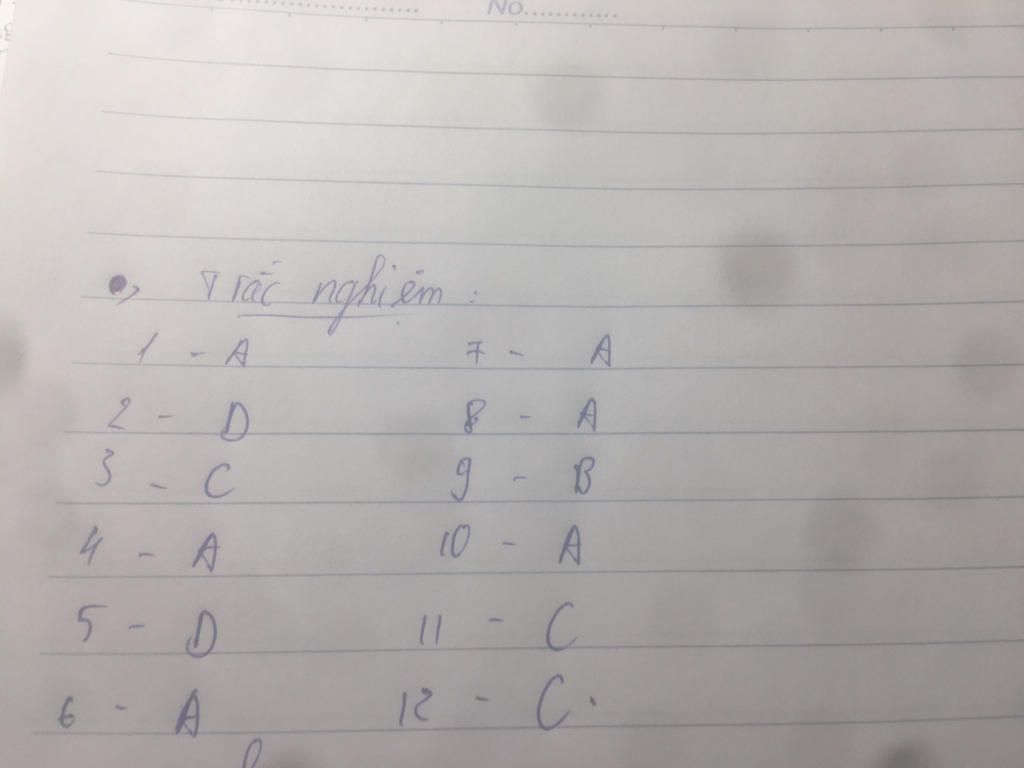 No..........
Trắc nghiệm :
1 - A 7 - A
2 - D 8 - A
3 - C 9 - B
4 - A 10 - A
5 - D 11 - C
6 - A 12 - C.